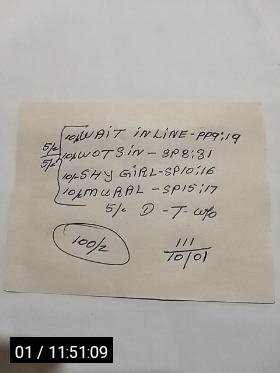 10/- WAIT IN LINE - PP9;19
5/2 10/- WOTSIN - SP8;81
5/2 10/- SHY GIRL - SP10;16
10/- MURAL - SP15;17
5/- D - T - w/o
100/2
111
10/01
01 / 11:51:09